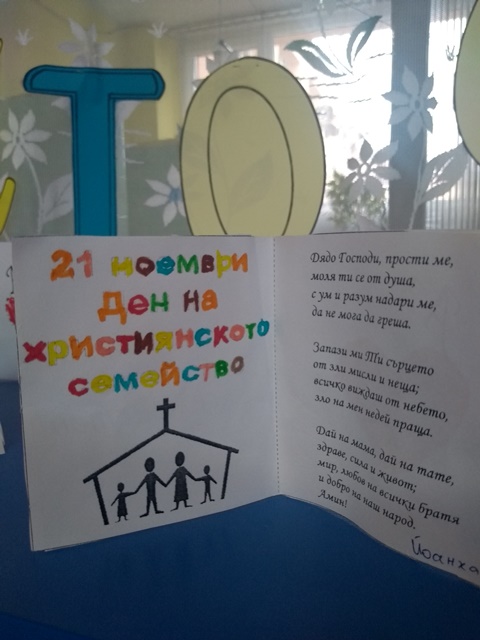 ТО
21 ноември
Ден на
християнското
семейство
Дядо Господи, прости ме,
моля ти се от душа,
с ум и разум надари ме,
да не мога да греша.
Запази ми Ти сърцето
от зли мисли и неща;
всичко виждаш от небето,
зло на мен недей праща.
Дай на мама, дай на тате,
здраве, сила и живот;
мир, любов на всички братя
и добро на наш народ.
Амин!
Йоанха